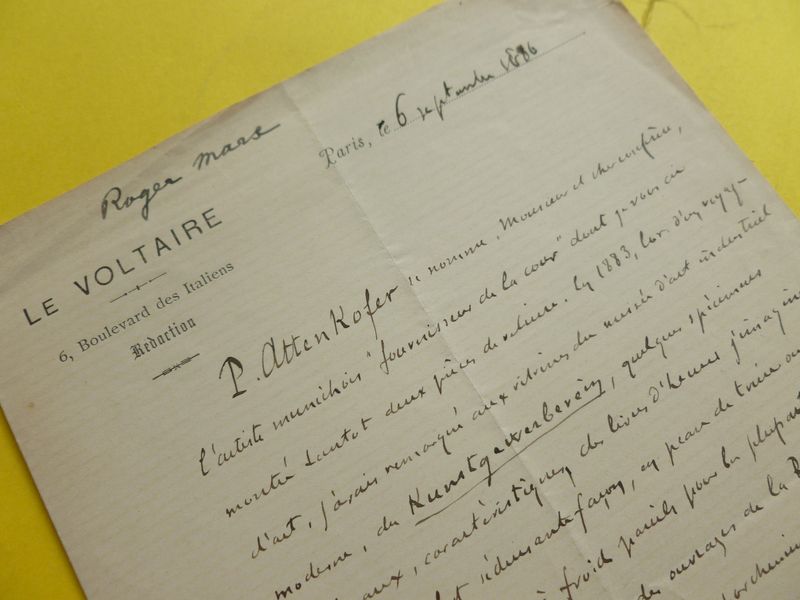 Roger Marx
Paris, le 6 septembre 1886
LE VOLTAIRE
6, Boulevard des Italiens
Rédaction
P. Attenkofer se nomme, Monsieur et cher confrère,
l'artiste munichois "fournisseur de la cour" dont je vous ai
montré tantôt deux pièces de reliure. En 1883, lors d'un voyage
d'art, j'avais remarqué aux vitrines du musée d'art industriel
moderne, du Kunstgewerbeverein, quelques spécimens
caractéristiques, des livres d'heures j'imagine
séduisante façon, en peau de truie ou
à froid pareils pour la plupart
des ouvrages de la
parchemin